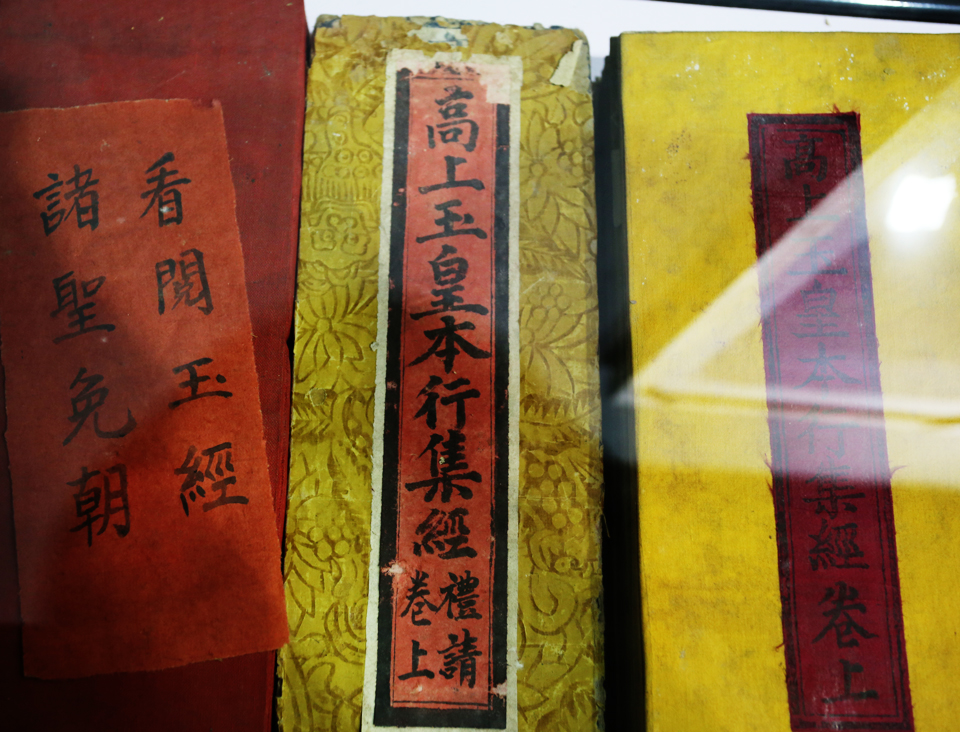 看閱玉經
諸聖免朝
高上玉皇本行集經
禮請
卷上
高上玉皇本行集經卷上